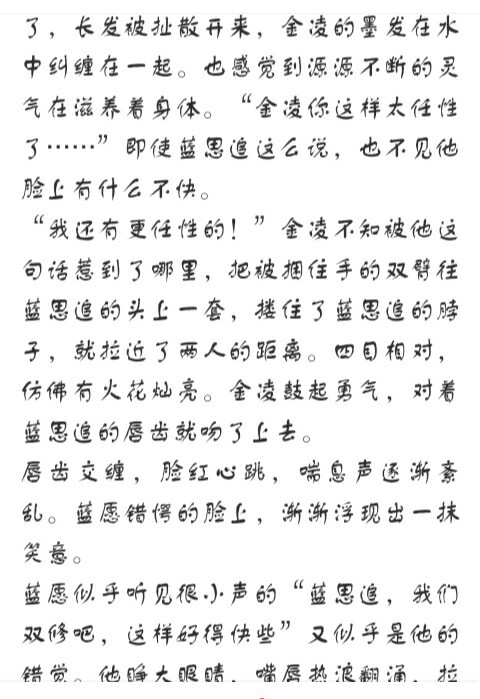 了，长发被扯散开来，金凌的墨发在水
中纠缠在一起。也感觉到源源不断的灵
气在滋养着身体。“金凌你这样太任性
了……”即使蓝思追这么说，也不见他
脸上有什么不快。
“我还有更任性的！”金凌不知被他这
句话惹到了哪里，把被捆住手的双臂往
蓝思追的头上一套，搂住了蓝思追的脖
子，就拉近了两人的距离。四目相对，
仿佛有火花灿亮。金凌鼓起勇气，对着
蓝思追的唇齿就吻了上去。
唇齿交缠，脸红心跳，喘息声逐渐紊
乱。蓝愿错愕的脸上，渐渐浮现出一抹
笑意。
蓝愿似乎听见很小声的“蓝思追，我们
双修吧，这样好得快些”又似乎是他的
错觉。他睁大眼睛，嘴唇热浪翻涌，拉